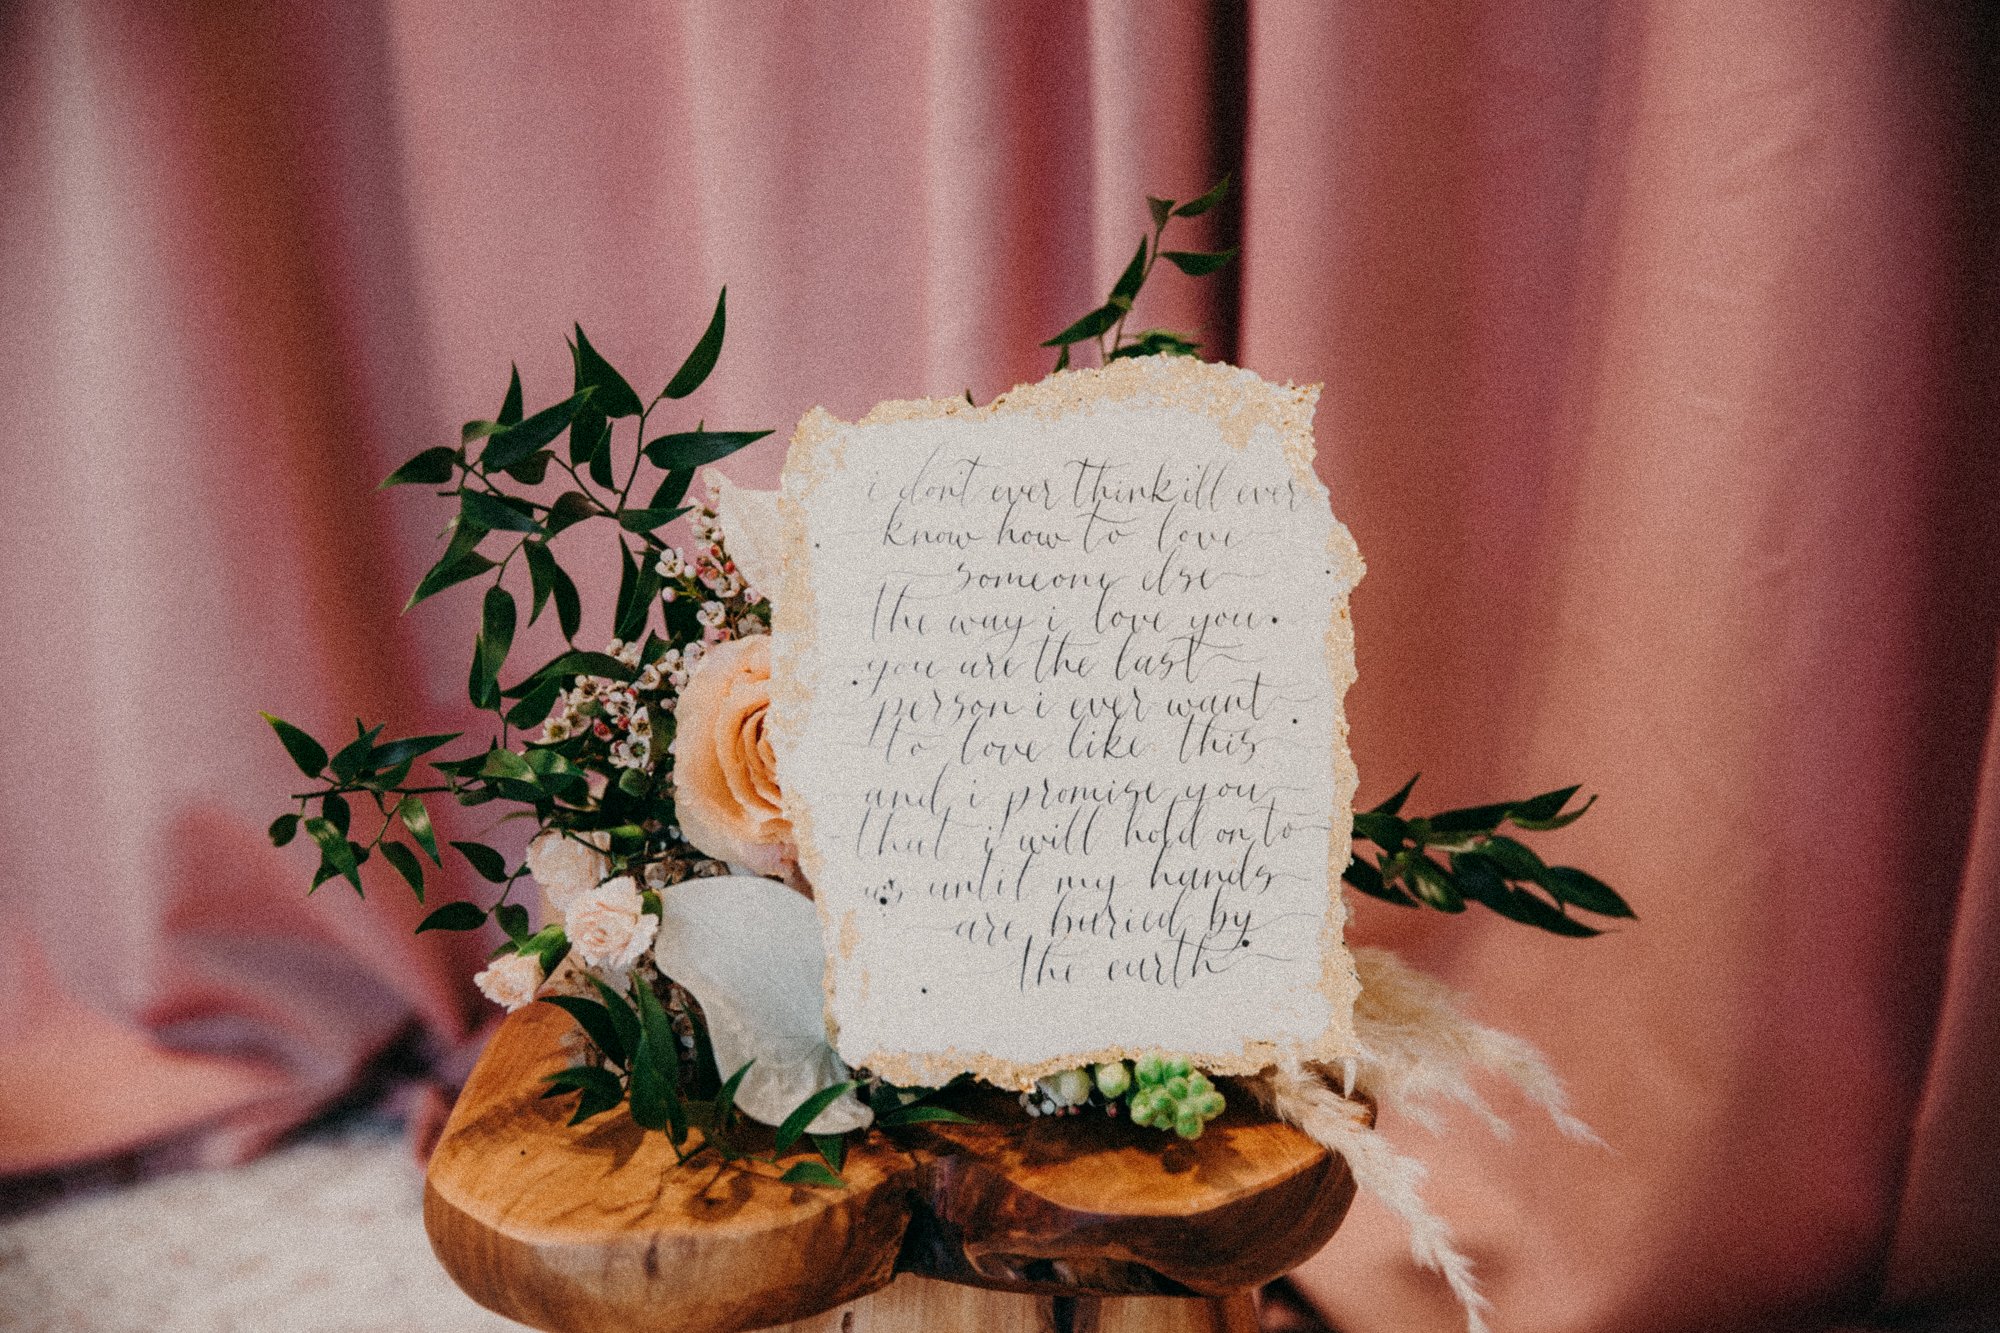 i don't ever think ill ever
know how to love
someone else
the way i love you.
you are the last
person i ever want
to love like this
and i promise you
that i will hold on to
us until my hands
are buried by
the earth